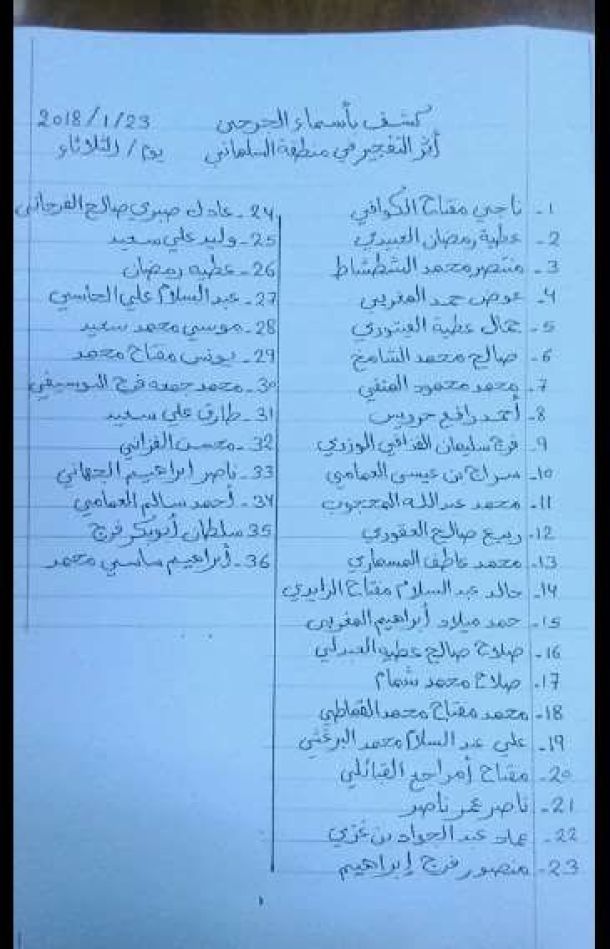 كشف بأسماء الجرحى 2018/1/23
أثر التفجير في منطقة السلماني يوم/ الثلاثاء
1- ناجي مفتاح الكوافي
2- عطية رمضان العبيدي
3- منتصر محمد الشطشاط
4- عوض حمد المغربي
5- جمال عطية
6- صالح محمد الشامخ
7- محمد محمود المنفي
8- أحمد رافع حرويس
9- فرج سليمان
10- سراج بن عيسى العمامي
11- محمد عبدالله المحجوب
12- ربيع صالح العقوري
13- محمد عاطف المسماري
14- خالد عبد السلام مفتاح
15- حمد ميلاد أبراهيم المغربي
16- صلاح صالح عطيه العبدلي
17- صلاح محمد شمام
18- محمد مفتاح محمد القماطي
19- علي عبد السلام محمد البرغثي
20- مفتاح أمراجع القبائلي
21- ناصر عمر ناصر
22- عماد عبد الجواد بن غزي
23- منصور فرج إبراهيم
24- عادل صبري صالح الفرجاني
25- وليد علي سعيد
26- عطيه رمضان
27- عبد السلام علي الحاسي
28- موسي محمد سعيد
29- يونس مفتاح محمد
30- محمد جمعه فرج
31- طارق علي سعيد
32- محسن الفزاني
33- ناصر ابراهيم الجهاني
34- أحمد سالم العمامي
35 سلطان أبوبكر فرج
36- أبراهيم ساسي محمد